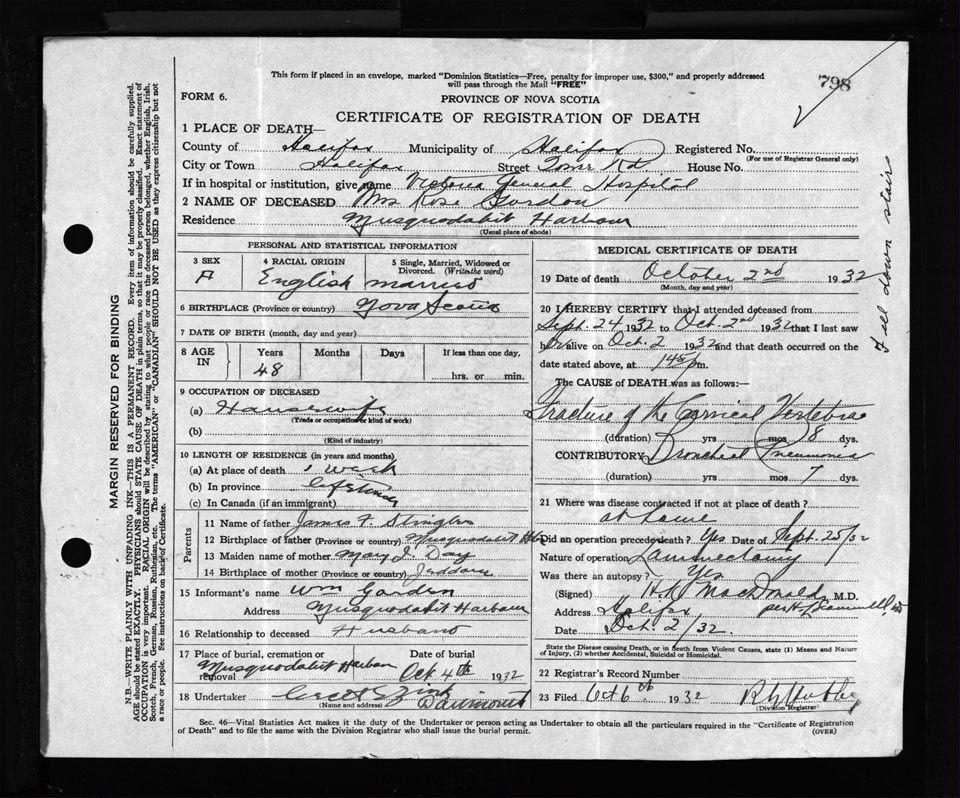 798
This form if placed in an envelope, marked "Dominion Statistics—Free, penalty for improper use, $300," and properly addressed
will pass through the Mail "FREE"
FORM 6.
PROVINCE OF NOVA SCOTIA
CERTIFICATE OF REGISTRATION OF DEATH
1 PLACE OF DEATH—
County of Halifax Municipality of Halifax Registered No.
(For use of Registrar General only)
City or Town Halifax Street Tower Rd House No.
If in hospital or institution, give name Victoria General Hospital
2 NAME OF DECEASED Mrs Rose Gordon
Residence Musquodobit Harbour
(Usual place of abode)
PERSONAL AND STATISTICAL INFORMATION
3 SEX
4 RACIAL ORIGIN English
5 Single, Married, Widowed or
Divorced. (Write the word) married
6 BIRTHPLACE (Province or country) Nova Scotia
7 DATE OF BIRTH (month, day and year)
8 AGE IN Years Months Days If less than one day,
48 hrs. or min.
9 OCCUPATION OF DECEASED
(a) Housewife
(Trade or occupation or kind of work)
(b)
(Kind of industry)
10 LENGTH OF RESIDENCE (in years and months)
(a) At place of death 1 week
(b) In province Lifetime
(c) In Canada (if an immigrant)
Parents
11 Name of father James F.
12 Birthplace of father (Province or country) Musquodobit Hbr
13 Maiden name of mother Mary J Day
14 Birthplace of mother (Province or country) Jeddore
15 Informant's name Wm Gordon
Address Musquodobit Harbour
16 Relationship to deceased Husband
17 Place of burial, cremation or removal Musquodobit Harbour
Date of burial Oct 4th 1932
18 Undertaker Zink
(Name and address) Dartmouth
MEDICAL CERTIFICATE OF DEATH
19 Date of death October 2nd 1932
(Month, day and year)
20 I HEREBY CERTIFY that I attended deceased from
Sept. 24 1932 to Oct. 2nd 1932 that I last saw
her alive on Oct. 2 1932 and that death occurred on the
date stated above, at 1 45 p m.
The CAUSE OF DEATH was as follows:—
Fracture of the Cervical Vertebrae
(duration) yrs mos 8 dys.
CONTRIBUTORY Bronchial Pneumonia
(duration) yrs mos 7 dys.
21 Where was disease contracted if not at place of death?
at home
Did an operation precede death? Yes Date of Sept. 25/32
Nature of operation Laminectomy
Was there an autopsy? Yes
(Signed) H.K. MacDonald M.D.
Address Halifax
Date Oct. 2/32.
State the Disease causing Death, or in Death from Violent Causes, state (1) Means and Nature
of Injury, (2) whether Accidental, Suicidal or Homicidal.
22 Registrar's Record Number
23 Filed Oct 6th 1932
(Division Registrar)
Sec. 46—Vital Statistics Act makes it the duty of the Undertaker or person acting as Undertaker to obtain all the particulars required in the "Certificate of Registration
of Death" and to file the same with the Division Registrar who shall issue the burial permit.
(OVER)
Fell down stairs
MARGIN RESERVED FOR BINDING
N.B.—WRITE PLAINLY WITH UNFADING INK—THIS IS A PERMANENT RECORD. Every item of information should be carefully supplied.
AGE should be stated EXACTLY. PHYSICIANS should STATE CAUSE OF DEATH in plain terms, so that it may be properly classified. Exact statement of
OCCUPATION is very important. RACIAL ORIGIN will be described by stating to what people or race the deceased person belonged, whether English, Irish,
Scotch, French, German, Russian, Ruthenian, etc. The terms "AMERICAN" or "CANADIAN" SHOULD NOT BE USED as they express citizenship but not
a race or people. See instructions on back of Certificate.